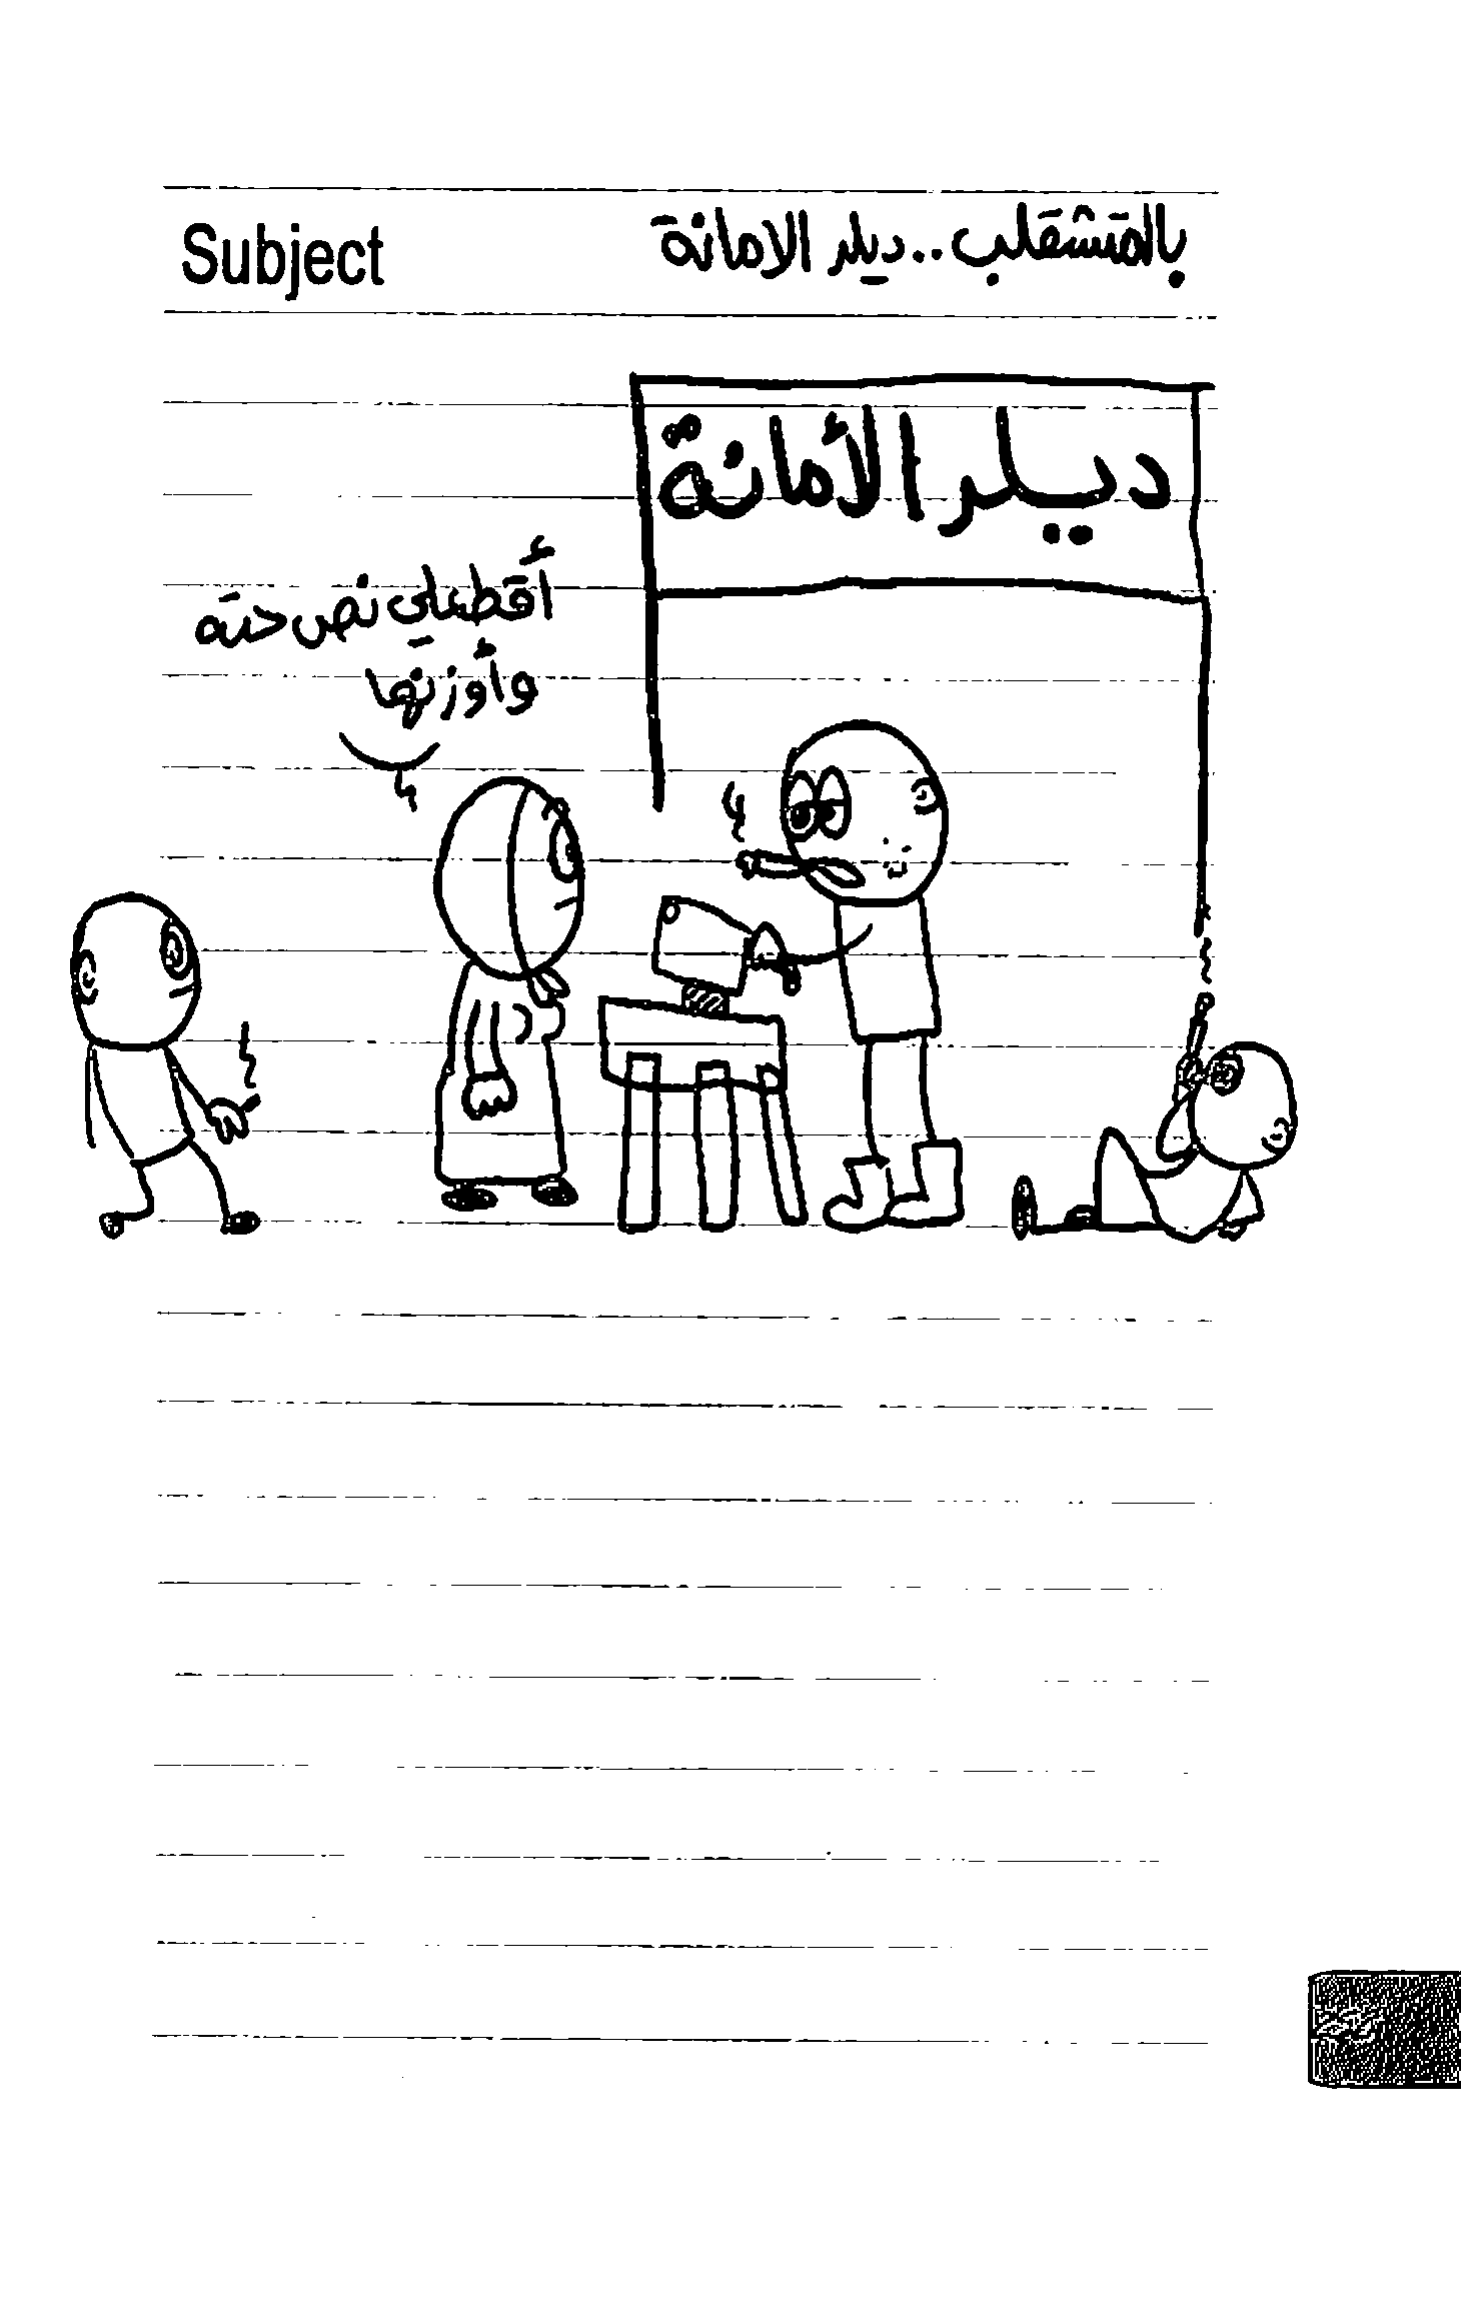 Subject
بالمتشقلب..ديلر الامانة
ديلر الأمانة
أقطعلي نص حته
وأوزنها